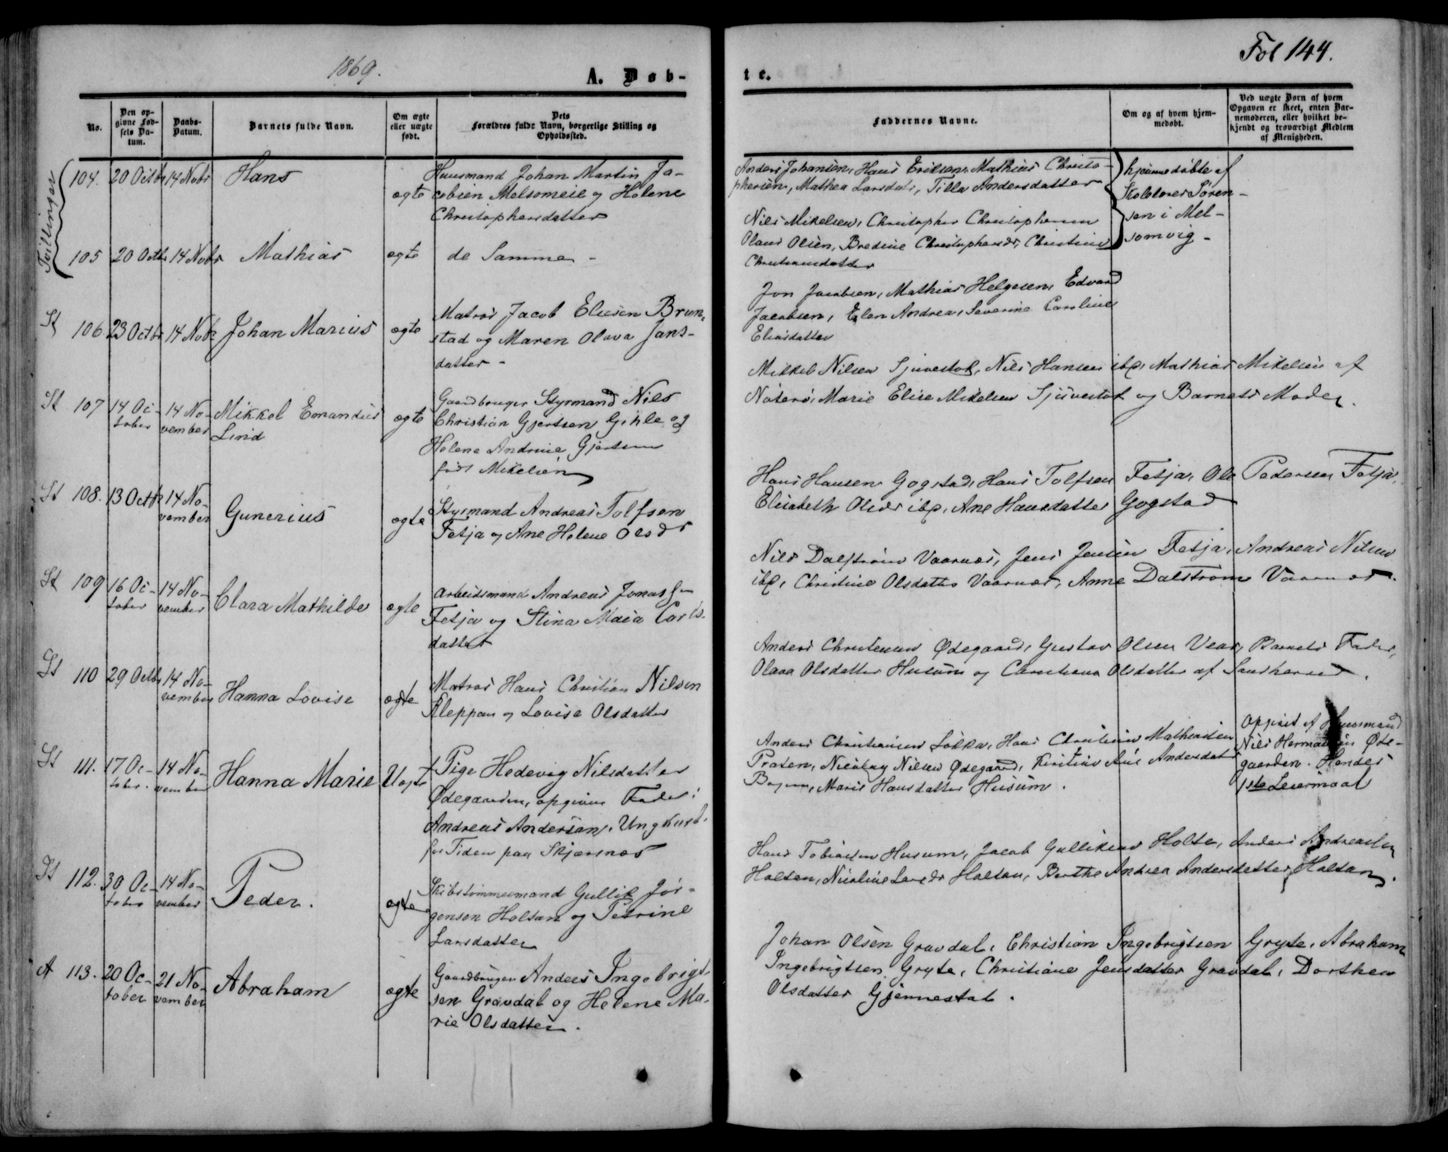 1869.
Fol 144.
A. Døb-
te.
No.
Den op-
givne Fød-
sels Da-
tum.
Daabs-
Datum.
Barnets fulde Navn.
Om ægte
eller uægte
født.
Dets
Forældres fulde Navn, borgerlige Stilling og
Opholdssted.
Faddernes Navne.
Om og af hvem hjem-
medøbt.
Ved uægte Børn af hvem
Opgaven er skeet, enten Bar-
nemoderen, eller hvilket be-
kjendt og troværdigt Medlem
af Menigheden.
Tvillinger
104. 20 Octbr 14 Novbr Hans ægte
Huusmand Johan Martin Ja-
cobsen Melsomeie og Helene
Christophersdatter
Anders Johansen, Hans Eriksen, Mathias Christo-
phersen, Mathea Larsdatr, Tilla Andersdatter
hjemmedøbte af
Skolelærer Søren-
sen i Mel-
somvig -
105 20 Octbr 14 Novbr Mathias ægte
de Samme -
Nils Mikelsen, Christopher Christophersen
Olaus Olsen, Bredine Christophersdr, Christine
Christiansdatter
St 106 23 Octbr 14 Novbr Johan Marius ægte
Matros Jacob Eliesen Brun-
stad og Maren Olava Jans-
datter -
Jon Jacobsen, Mathias Helgesen, Edvard
Jacobsen, Elen Andrea, Severine Caroline
Eliasdatter
St 107 14 Oc-
tober 14 No-
vember Mikkel Emandius
Lind ægte
Gaardbruger Styrmand Nils
Christian Gjertsen Gihle og
Helene Andrine Gjertsen
født Mikelsen
Mikkel Nilsen Sjuestok, Nils Hansen ibd, Mathias Mikelsen af
Nøterø, Marie Elise Mikelsen Sjuestok og Barnets Moder.
St 108. 13 Octbr 14 No-
vember Gunerius ægte
Styrmand Andreas Tolfsen
Fetja og Ane Helene Olsdr
Hans Hansen Gogstad, Hans Tolfsen Fetja, Ole Pedersen Fetja,
Elisabeth Olsdr ibd, Ane Hansdatter Gogstad
St 109 16 Oc-
tober 14 No-
vember Clara Mathilde ægte
Arbeidsmand Andreas Jonassen
Fetja og Stina Maia Carls-
datter
Nils Dalstrøm Vaarnes, Jens Jensen Fetja, Andreas Nilsen
ibd, Christine Olsdatter Vaarnes, Anne Dalstrøm Vaarnes.
St 110 29 Octbr 14 No-
vember Hanna Lovise ægte
Matros Hans Christian Nilsen
Kleppan og Lovise Olsdatter
Anders Christensen Ødegaard, Gustav Olsen Vear, Barnets Fader,
Olava Olsdatter Husum og Carstiana Olsdatter af Sandherred.
St 111. 17 Oc-
tober. 14 No-
vember Hanna Marie Uægte
Pige Hedevig Nilsdatter
Ødegaarden, opgiven Fader:
Andreas Andersen, Ungkarl,
for Tiden paa Skjærnæs
Anders Christiansen Løkka, Hans Christian Mathiassen
Nicolay Nilsen Ødegaard, Andersdatr
Marie Hansdatter Husum.
Opgivet af Huusmand
Nils Hermansen Øde-
gaarden. Hendes
1ste Leiermaal
St 112. 30 Oc-
tober 14 No-
vember Peder. ægte
Skibstømmermand Gullik Jør-
gensen Holtan og Petrine
Larsdatter
Hans Tobiassen Husum, Jacob Gulliksen Holtan, Anders Andreassen
Holtan, Nicoline Larsdr Holtan, Berthe Andrea Andersdatter Holtan.
A 113. 20 Oc-
tober 21 No-
vember Abraham ægte
Gaardbruger Anders Ingebrigt-
sen Gravdal og Helene Ma-
rie Olsdatter.
Johan Olsen Gravdal, Christian Ingebrigtsen Gryte, Abraham
Ingebrigtsen Gryte, Christiane Jensdatter Gravdal, Dorthea
Olsdatter Gjennestal.